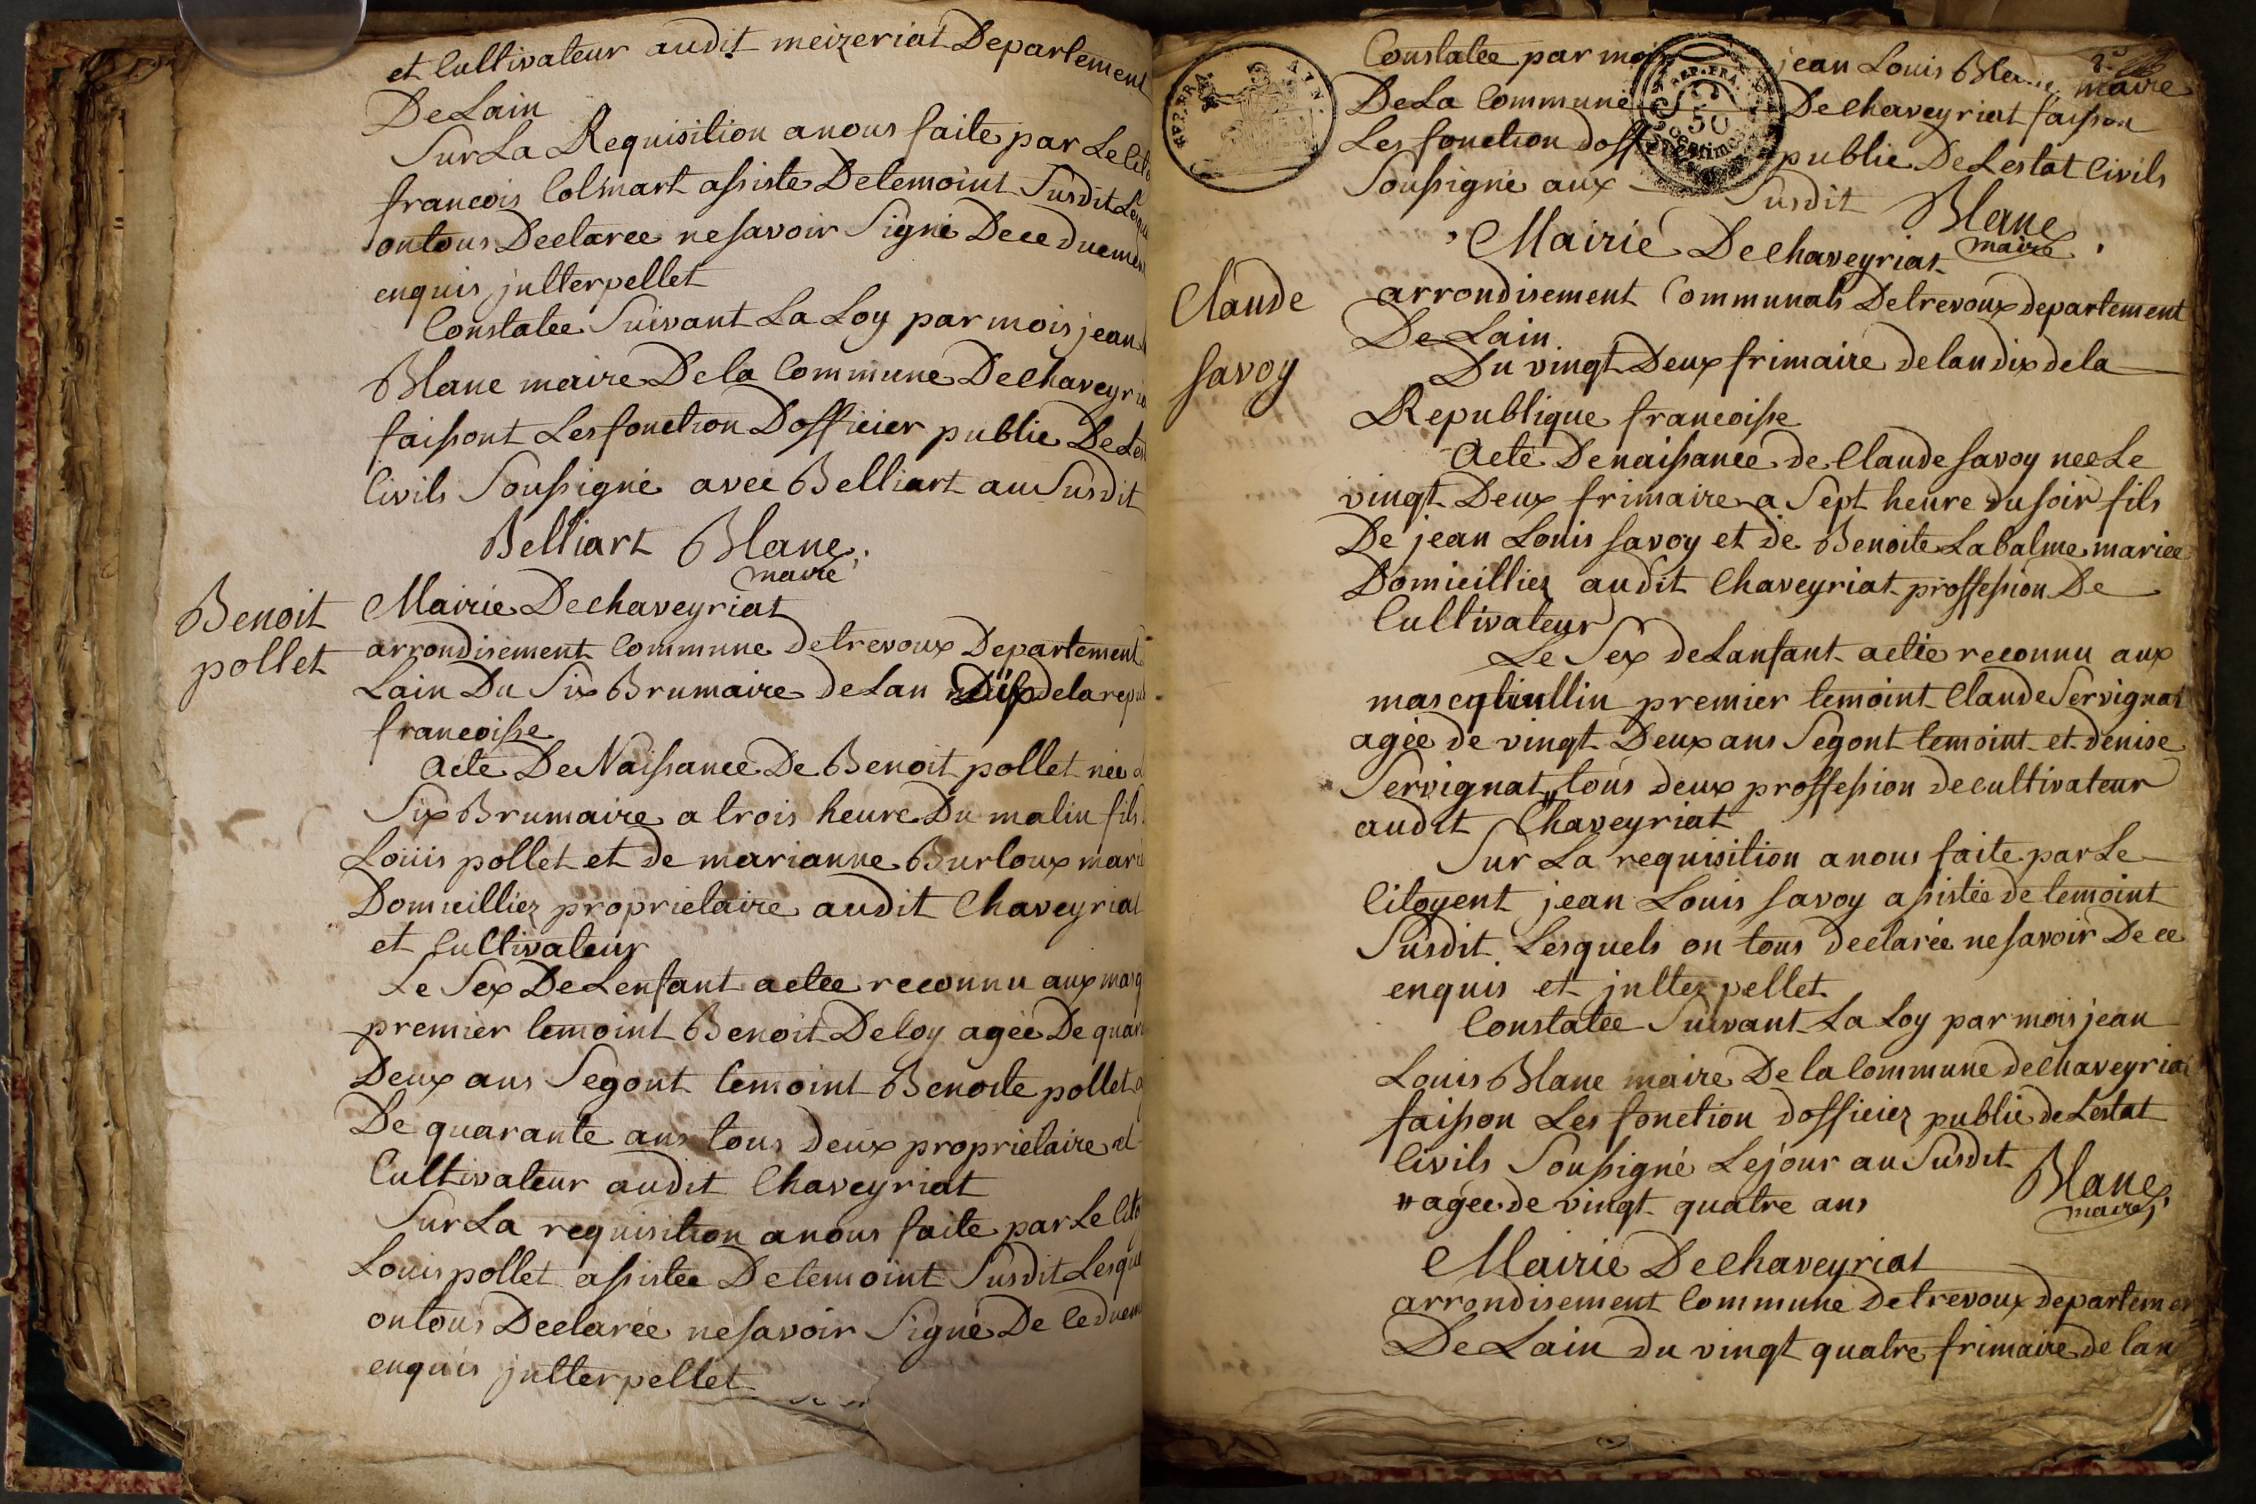 et Cultivateur audit meizeriat Departement
De Lain
Sur La Requisition a nous faite par Le Cito
francois Colmart assiste De temoint Susdit Lesque
on tous Declaree ne savoir Signé De ce duemen
enquis jnlterpellet
Constatee Suivant La Loy par mois jean
Blanc maire De la Commune De Chaveyria
faissont Les fonction Dofficier public De Les
Civils Soussigné avec Belliart au Susdit
Belliart Blanc
maire
Benoit
pollet
Mairie De Chaveyriat
arrondisement Commune de trevoux Departement
Lain Du Six Brumaire de Lan Dix de la repub
francoisse
Acte De Naissance De Benoit pollet née
Six Brumaire a trois heure Du matin fils
Louis pollet et de marianne Burtoux mari
Domicilliez proprietaire audit Chaveyriat
et Cultivateur
Le Sex De Lenfant a etee reconnu aux masq
premier temoint Benoit Deloy agée De quara
Deux ans Segont temoint Benoite pollet a
De quarante ans tous deux proprietaire et
Cultivateur audit Chaveyriat
Sur La requisition a nous faite par Le Cito
Louis pollet assistee De temoint Susdit Lesque
on tous Declarée ne savoir Signé De Ce duem
enquis jnlterpellet
Constatee par mois jean Louis Blanc maire
De La Commune De Chaveyriat faisson
Les fonction doff public De Lestat Civils
Soussigné aux Susdit
REP. FRA.
50
centimes
Blanc
maire
Mairie De Chaveyriat
Claude
savoy
arrondisement Communals De trevoux departement
De Lain
Du vingt Deux frimaire de lan dix de la
Republique francoisse
Acte De naissance de Claude savoy nee Le
vingt Deux frimaire a Sept heure du soir fils
De jean Louis savoy et de Benoite Labalme mariee
Domicilliez audit Chaveyriat proffession De
Cultivateur
Le Sex de Lanfant a etée reconnu aux
masqullin premier temoint Claude Servignat
agée de vingt Deux ans Segont temoint et denise
Servignat " tous deux proffession de cultivateur
audit Chaveyriat
Sur La requisition a nous faite par Le
Citoyent jean Louis savoy assistée de temoint
Susdit Lesquels on tous declarée ne savoir De ce
enquis et jnlterpellet
Constatee Suivant La Loy par mois jean
Louis Blanc maire De la Commune de Chaveyria
faisson Les fonction dofficiez public de Lestat
Civils Soussigné Le jour au Susdit
Blanc
maire
" agée de vingt quatre ans
Mairie De Chaveyriat
arrondisement Commune De trevoux departemen
De Lain du vingt quatre frimaire de lan